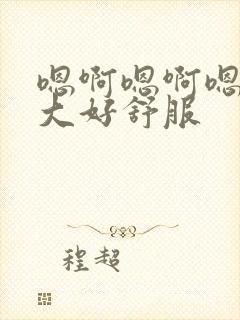 嗯啊嗯啊嗯
大好舒服
程超